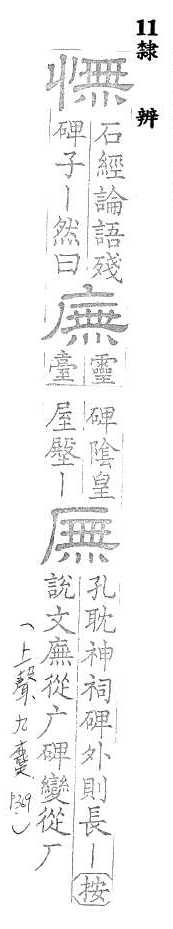 11
隸辨
憮
石經論語殘
碑子丨然曰
廡
靈
臺
碑陰皇
屋壂丨
孔耽神祠碑外則長丨按
說文廡從广碑變從厂
(上聲九麌 P369)